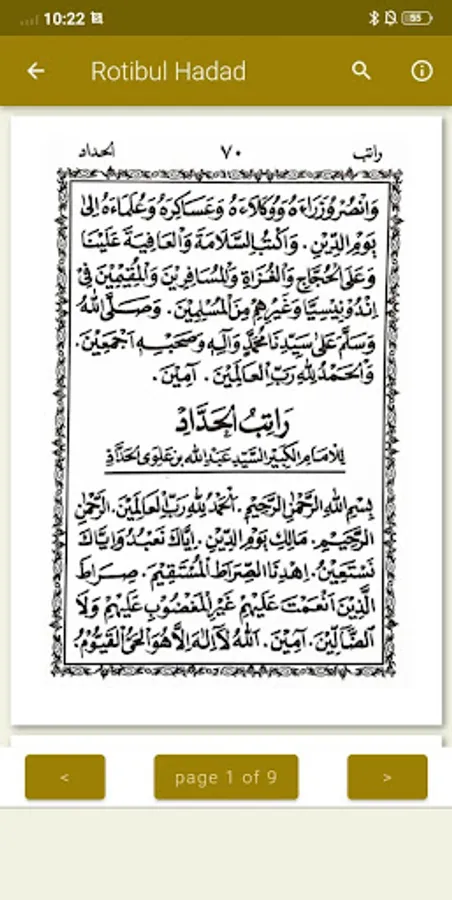 10:22
55
Rotibul Hadad
راتب ٧٠ الحداد
وَانْصُرْ وُزَرَاءَهُ وَوُكَلَاءَهُ وَعَسَاكِرَهُ وَعُلَمَاءَهُ اِلىٰ
يَوْمِ الدِّيْنِ. وَاكْتُبِ السَّلَامَةَ وَالْعَافِيَةَ عَلَيْنَا
وَعَلَى الْحُجَّاجِ وَالْغُزَاةِ وَالْمُسَافِرِيْنَ وَالْمُقِيْمِيْنَ فِيْ
اِنْدُوْنِيْسِيَّا وَغَيْرِهِمْ مِنَ الْمُسْلِمِيْنَ. وَصَلَّى اللهُ
وَسَلَّمَ عَلىٰ سَيِّدِنَا مُحَمَّدٍ وَآلِهِ وَصَحْبِهِ اَجْمَعِيْنَ.
وَالْحَمْدُ لِلّٰهِ رَبِّ الْعَالَمِيْنَ. آمِيْنَ.
رَاتِبُ الْحَدَّادِ
لِلْاِمَامِ الْكَبِيْرِ السَّيِّدِ عَبْدِ اللهِ بْنِ عَلَوِى الْحَدَّادِ
بِسْمِ اللهِ الرَّحْمٰنِ الرَّحِيْمِ. اَلْحَمْدُ لِلّٰهِ رَبِّ الْعَالَمِيْنَ. الرَّحْمٰنِ
الرَّحِيْمِ. مَالِكِ يَوْمِ الدِّيْنِ. اِيَّاكَ نَعْبُدُ وَاِيَّاكَ
نَسْتَعِيْنُ. اِهْدِنَا الصِّرَاطَ الْمُسْتَقِيْمَ. صِرَاطَ
الَّذِيْنَ اَنْعَمْتَ عَلَيْهِمْ غَيْرِ الْمَغْضُوْبِ عَلَيْهِمْ وَلَا
الضَّالِّيْنَ. آمِيْنَ. اَللهُ لَا اِلٰهَ اِلَّا هُوَ الْحَيُّ الْقَيُّوْمُ.
< page 1 of 9 >